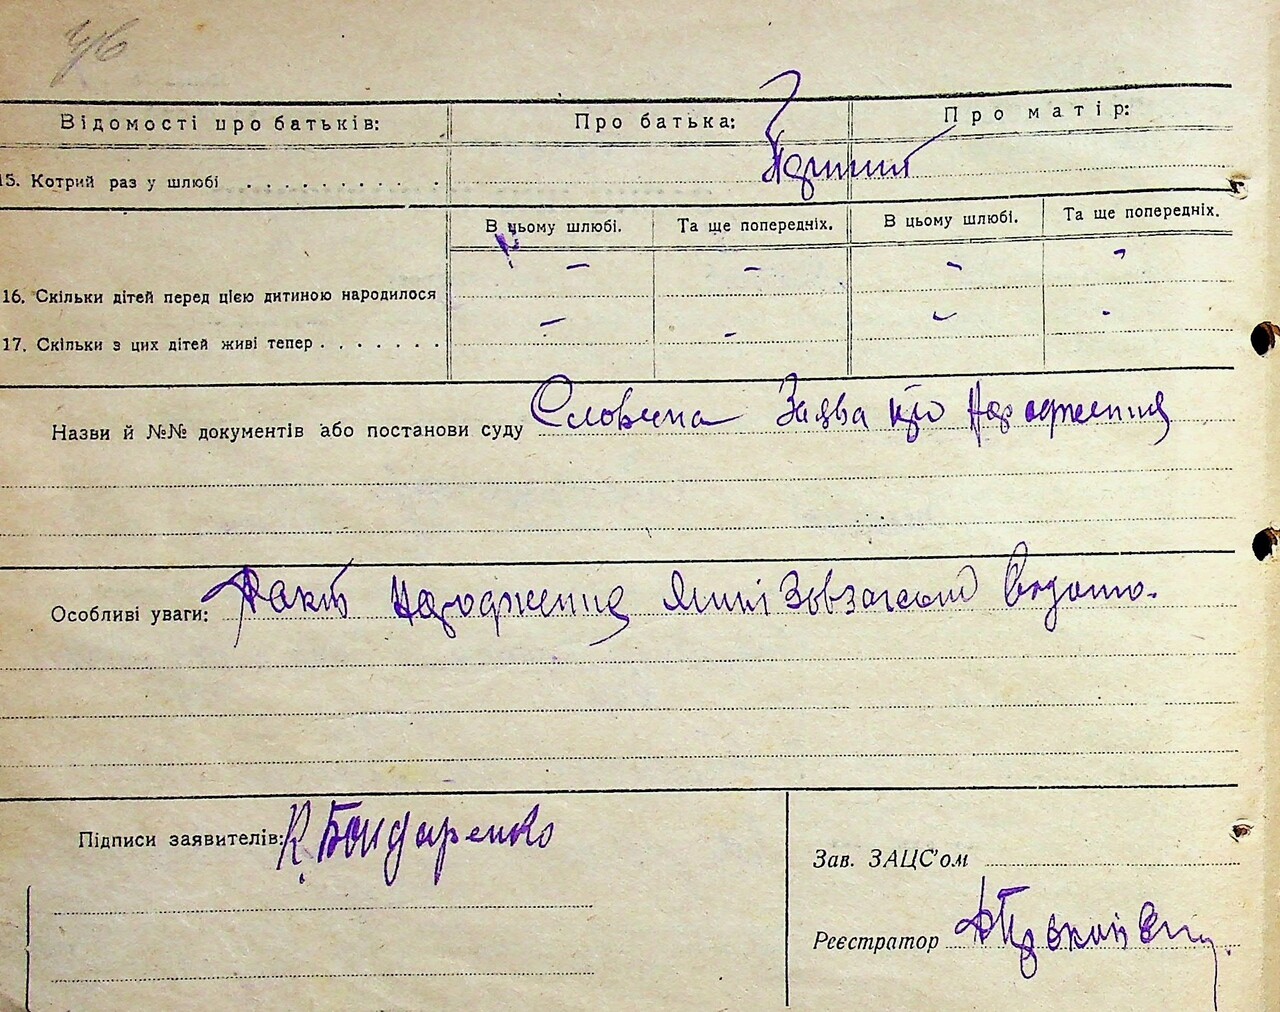 46
Відомості про батьків: Про батька: Про матір:
15. Котрий раз у шлюбі . . . . . . . . . .
В цьому шлюбі. Та ще попередніх. В цьому шлюбі. Та ще попередніх.
16. Скільки дітей перед цією дитиною народилося - - - -
17. Скільки з цих дітей живі тепер . . . . . . . - - - -
Назви й №№ документів або постанови суду Словесна Заява про Народження
Особливі уваги: Факт Народження
Підписи заявителів: К. Бондаренко
Зав. ЗАЦС'ом
Реєстратор